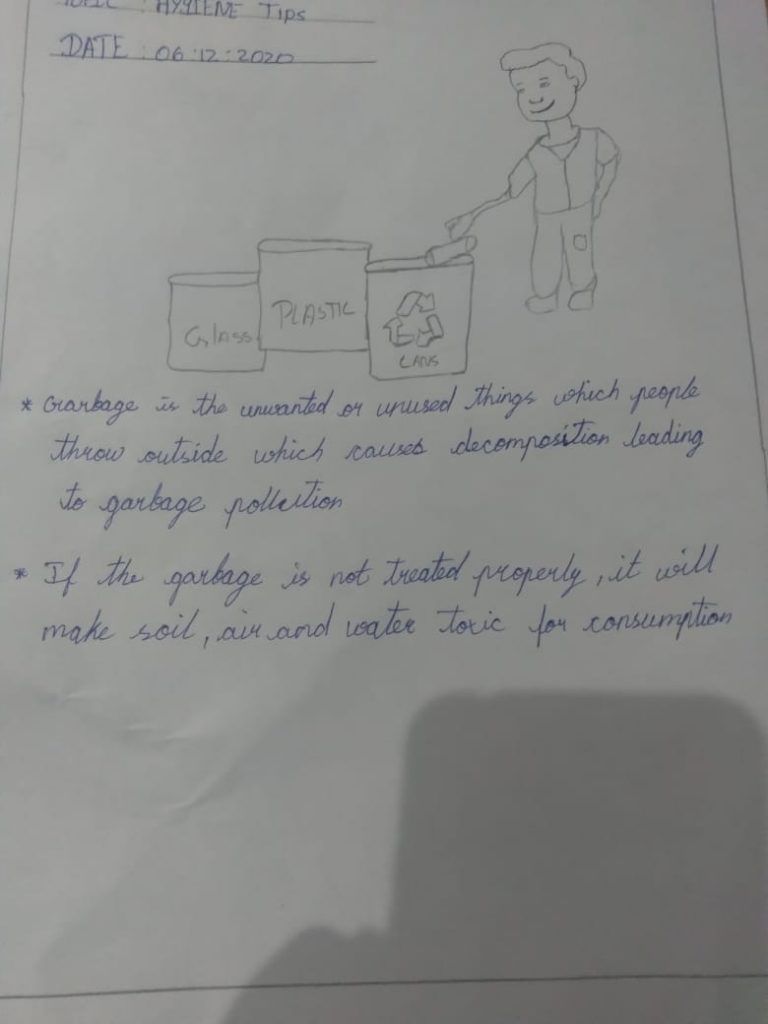 TOPIC : HYGIENE Tips
DATE : 06:12:2020
Glass
PLASTIC
CANS
* Garbage is the unwanted or unused things which people
throw outside which causes decomposition leading
to garbage pollution
* If the garbage is not treated properly, it will
make soil, air and water toxic for consumption